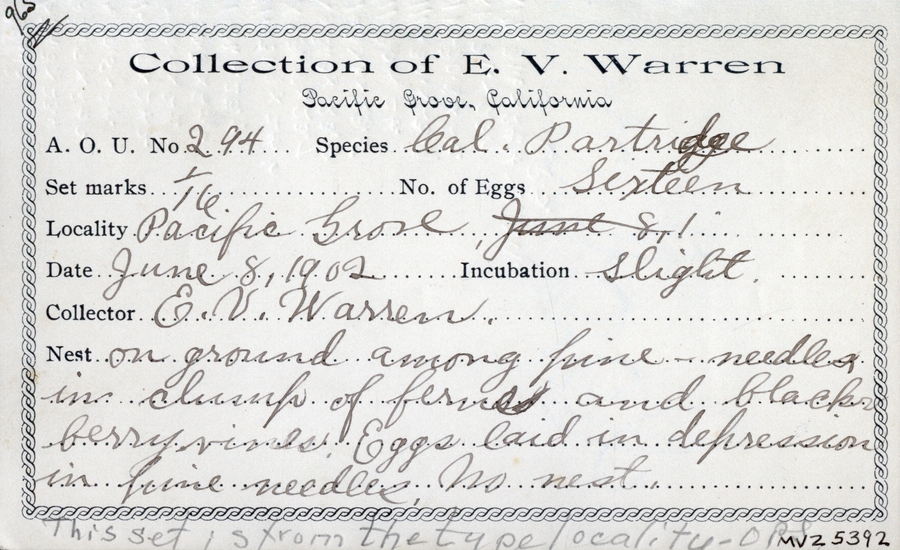 965
Collection of E. V. Warren
Pacific Grove, California
A. O. U. No 294 Species Cal. Partridge
Set marks 1/16 No. of Eggs Sixteen
Locality Pacific Grove, June 8, 1
Date June 8, 1902 Incubation Slight.
Collector E. V. Warren.
Nest on ground among pine-needles
in clump of ferns and black-
berry vines. Eggs laid in depression
in pine needles, No nest.
This set is from the type locality-
MVZ 5392